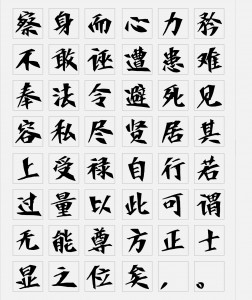 察身而心力矜
不敢诬遭患难
奉法令避死见
容私尽贤居其
上受禄自行若
过量以此可谓
无能尊方正士
显之位矣，。